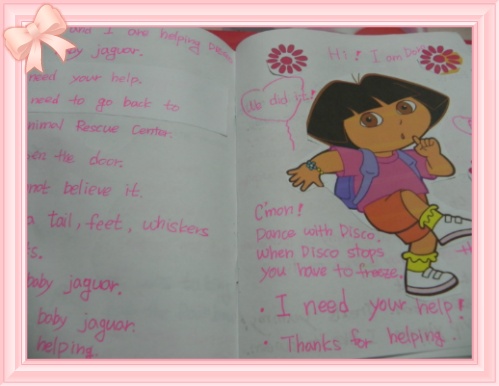 and I are helping
baby jaguar.
need your help.
need to go back to
Animal Rescue Center.
the door.
not believe it.
a tail, feet, whiskers
baby jaguar.
baby jaguar.
helping.
Hi! I am Dora
We did it!
C'mon!
Dance with Disco.
When Disco stops
you have to freeze.
· I need your help!
· Thanks for helping.